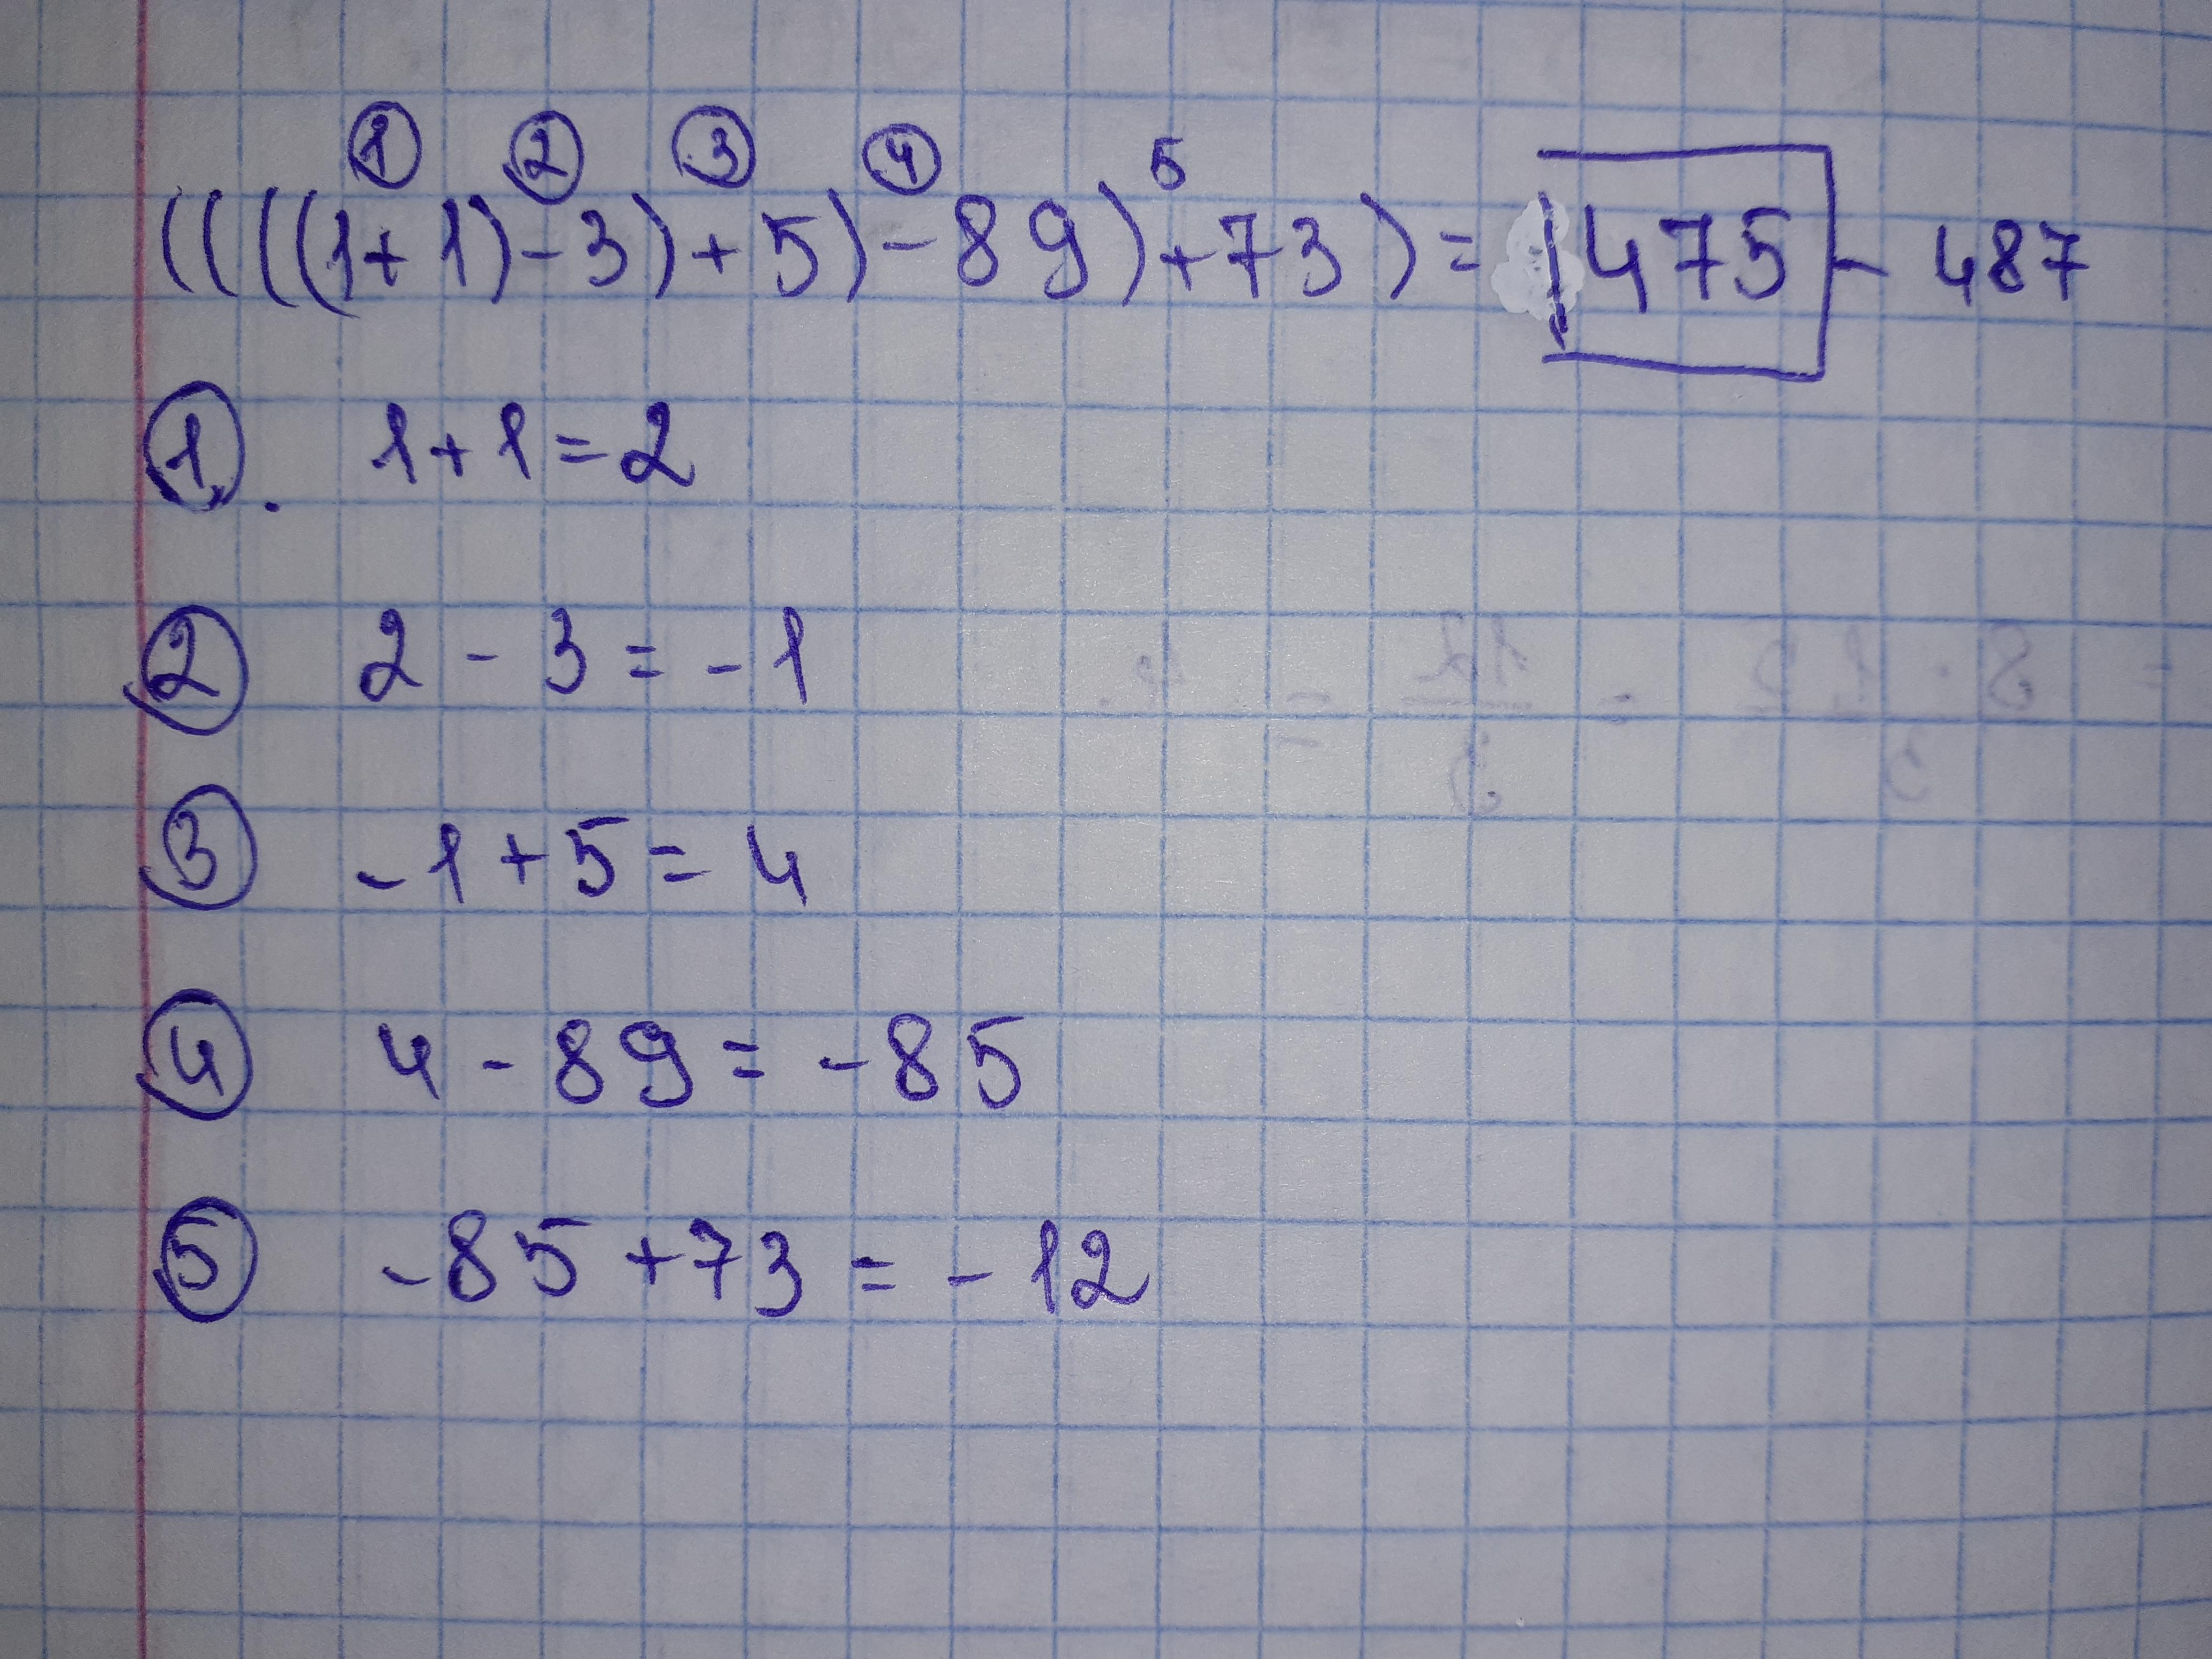 ① ② ③ ④ 5
(((((1+1)-3)+5)-89)+73)=475-487
①. 1+1=2
② 2-3=-1
③ -1+5=4
④ 4-89=-85
⑤ -85+73=-12